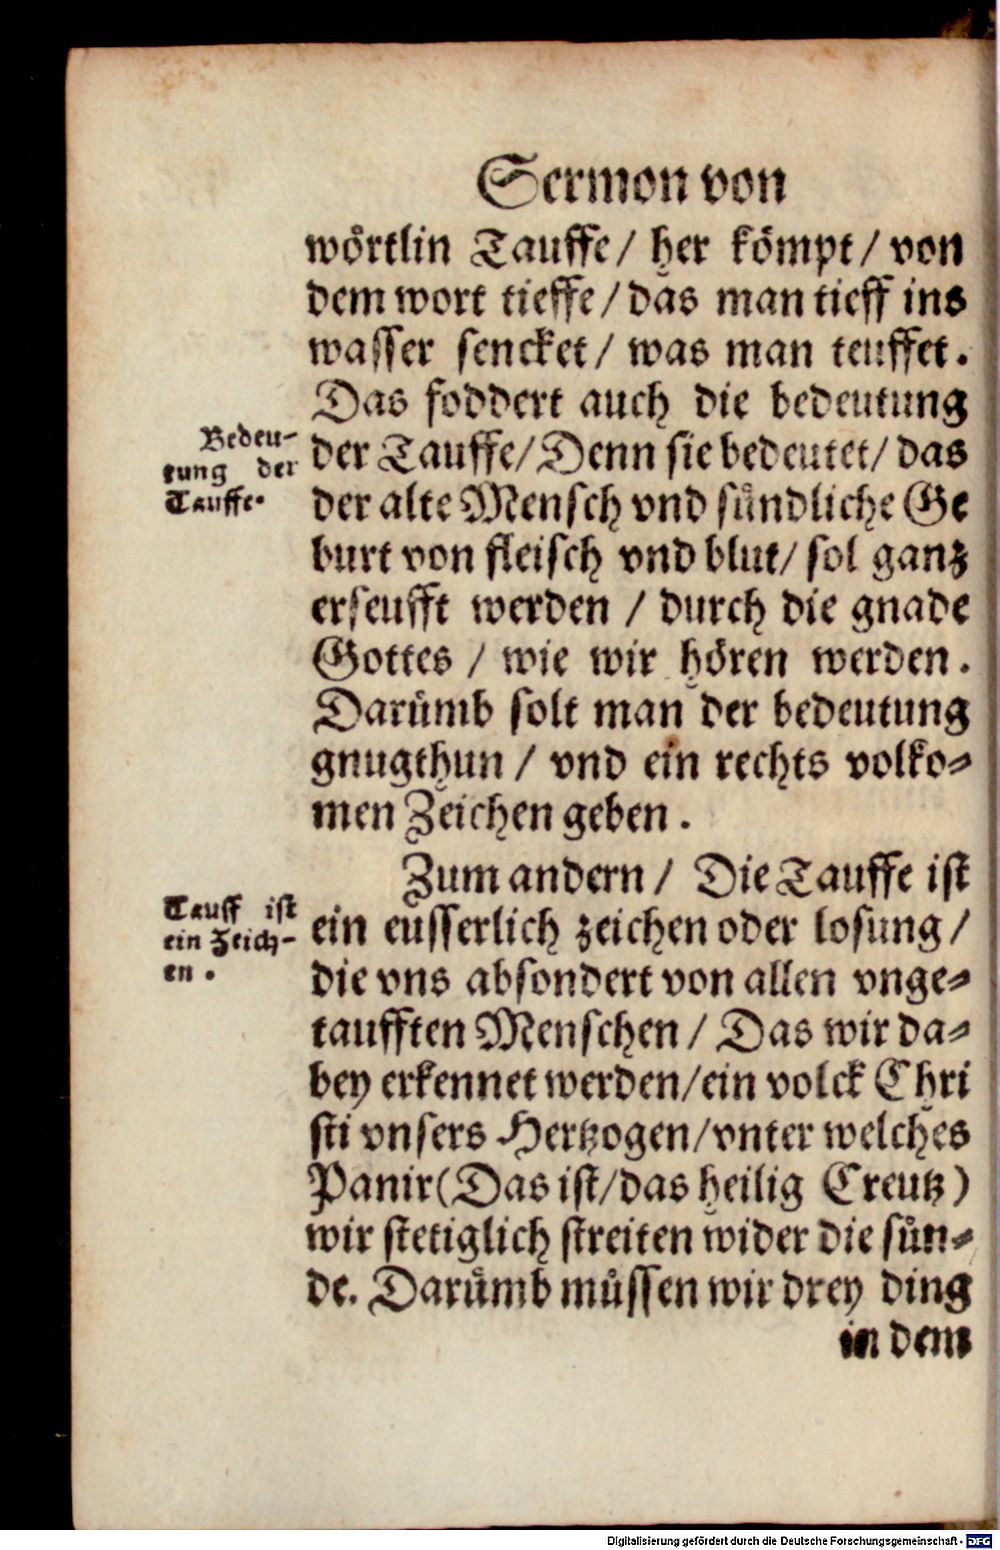 Sermon von
wörtlin Tauffe/ her kömpt/ von
dem wort tieffe/ das man tieff ins
wasser sencket/ was man teuffet.
Das foddert auch die bedeutung
Bedeu-
tung der
Tauffe.
der Tauffe/ Denn sie bedeutet/ das
der alte Mensch vnd sündliche Ge
burt von fleisch vnd blut/ sol ganz
erseufft werden / durch die gnade
Gottes / wie wir hören werden.
Darümb solt man der bedeutung
gnugthun / vnd ein rechts volko-
men Zeichen geben.
Zum andern/ Die Tauffe ist
Tauff ist
ein Zeich-
en.
ein eusserlich zeichen oder losung/
die vns absondert von allen vnge-
taufften Menschen/ Das wir da-
bey erkennet werden/ein volck Chri
sti vnsers Hertzogen/vnter welches
Panir(Das ist/das heilig Creutz)
wir stetiglich streiten wider die sün-
de. Darümb müssen wir drey ding
in dem
Digitalisierung gefördert durch die Deutsche Forschungsgemeinschaft - DFG